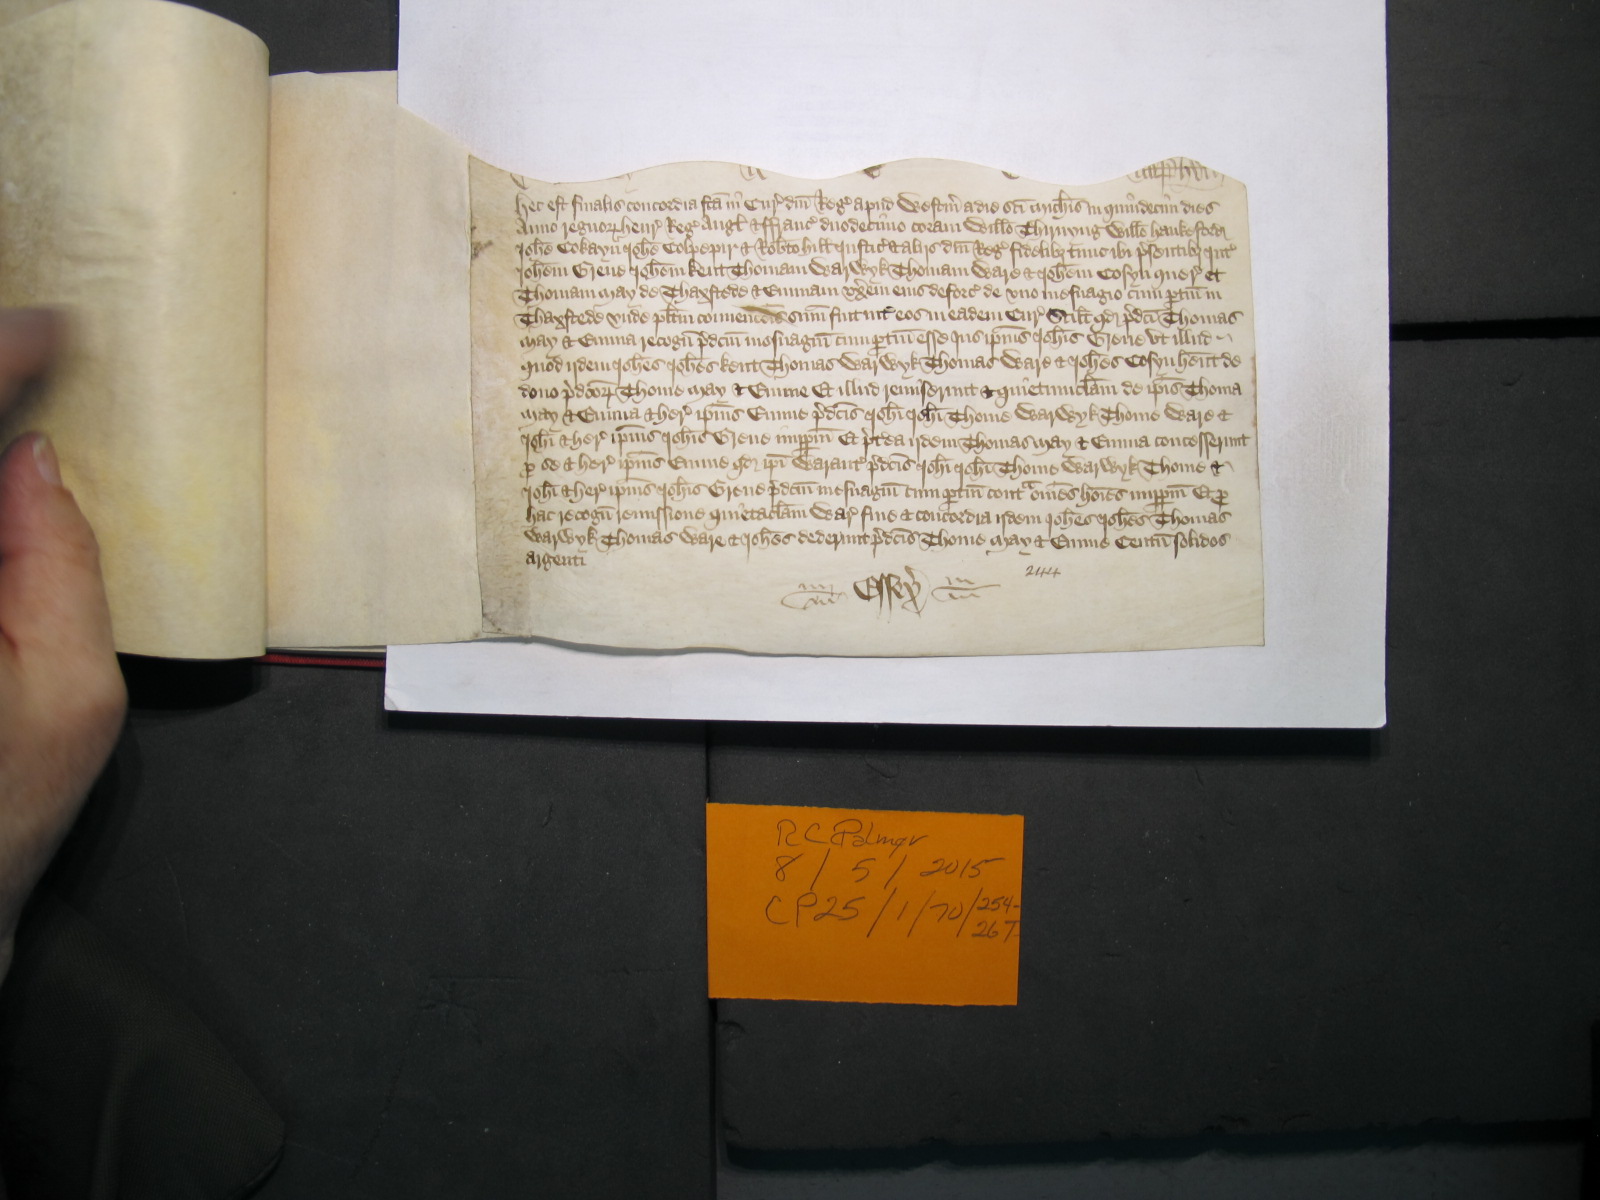 Hec est finalis concordia fc̃a in Cur̃ dñi Reg̃ apud Westm̃ a die sc̃i Mich̃is in quindecim dies
Anno regnoꝝ Henr̃ Reg̃ Angł & Ffranc̃ duodecimo coram Willo Thirnyng Willo Hankeford
Joh̃e Cokayn Joh̃e Colpepir & Rob̃to Hill Justic̃ & alijs dñi Reg̃ fidelibȝ tunc ibi p̃sentibȝ Int̃
Joh̃em Grene Joh̃em Kent Thomam Warwyk Thomam Ware & Joh̃em Cosyn quer̃ Et
Thomam May de Thaxstede & Emmam vx̃em eius deforc̃ de vno mesuagio cum ptin̄ in
Thaxstede vnde plit̃m conuencõis sum̄ fuit int̃ eos in eadem Cur̃ Scilt qd p̃dc̃i Thomas
May & Emma recogn̄ p̃dc̃m mesuagiũ cum ptin̄ esse Jus ip̃ius Joh̃is Grene vt illud
quod ijdem Joh̃es Joh̃es Kent Thomas Warwyk Thomas Ware & Joh̃es Cosyn hent de
dono p̃dc̃oꝝ Thome May & Emme Et illud remiserunt & quietumclam̄ de ip̃is Thoma
May & Emma & her̃ ip̃ius Emme p̃dc̃is Joh̃i Joh̃i Thome Warwyk Thome Ware &
Joh̃i & her̃ ip̃ius Joh̃is Grene imppm̄ Et p̃t̃ea ijdem Thomas May & Emma concesserunt
p se & her̃ ip̃ius Emme qd ip̃i Warant̃ p̃dc̃is Joh̃i Joh̃i Thome Warwyk Thome &
Joh̃i & her̃ ip̃ius Joh̃is Grene p̃dc̃m mesuagiũ cum ptin̄ contᵃ om̃es hoĩes imppm̄ Et p
hac recogn̄ remissione quietaclam̄ War̃ fine & concordia ijdem Joh̃es Joh̃es Thomas
Warwyk Thomas Ware & Joh̃es dederunt p̃dc̃is Thome May & Emme Centũ solidos
argenti
Essex̃
244
R C Palmer
8 / 5 / 2015
CP25 / 1 / 70 / 254-
267